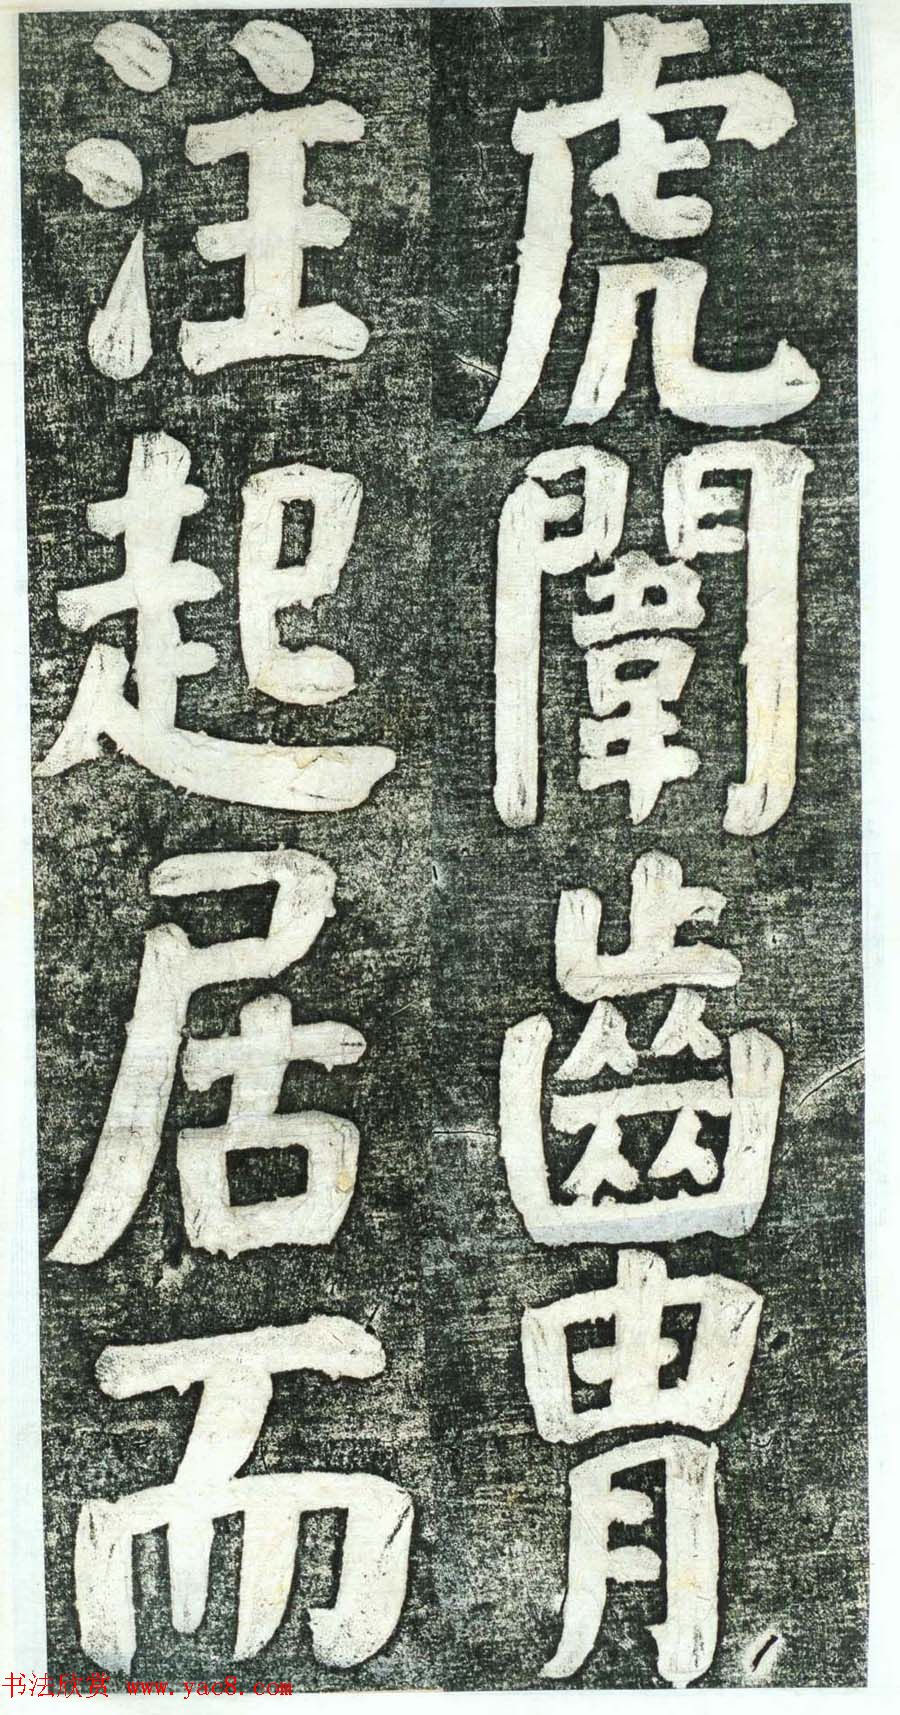 虎闈齒胄
注起居而
书法欣赏 www.yac8.com